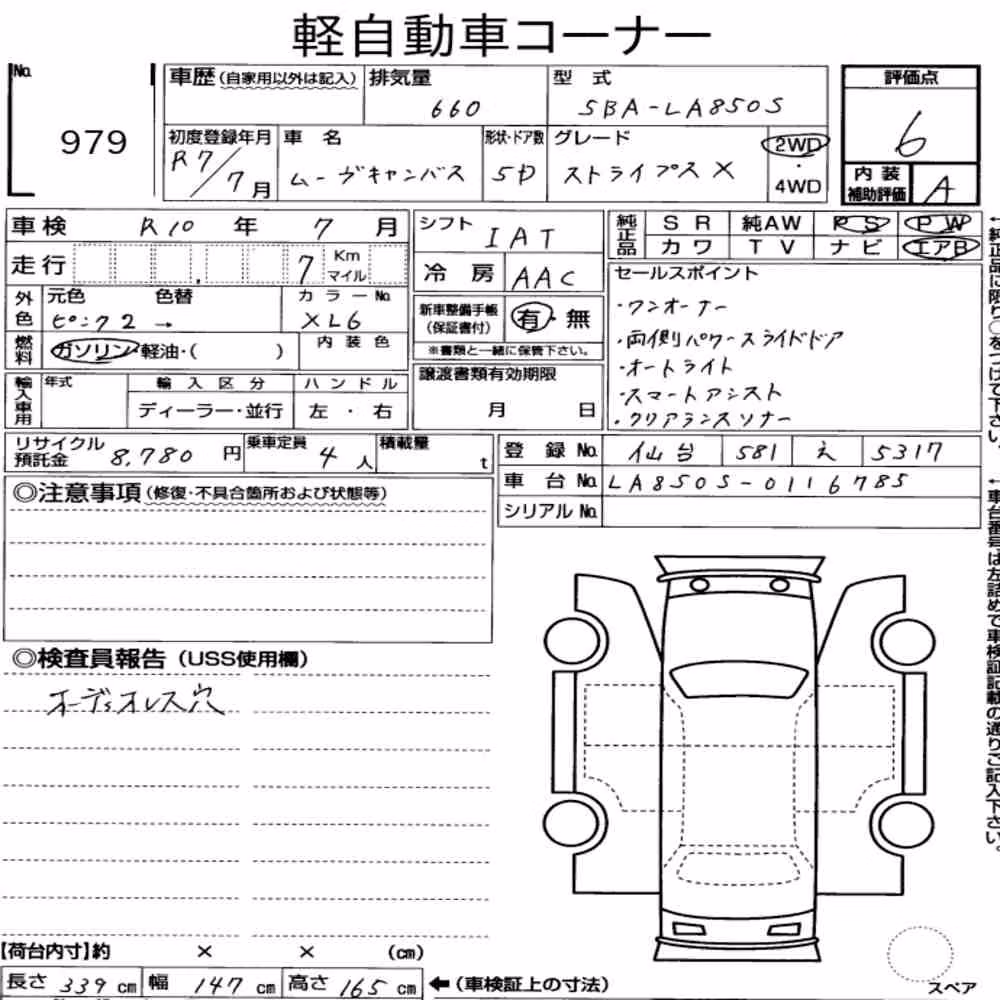 軽自動車コーナー
No. 979
車歴 (自家用以外は記入)
排気量 660
型式 5BA-LA850S
評価点 6
初度登録年月 R7/7月
車名 ムーヴキャンバス
形状・ドア数 5D
グレード ストライプス X
2WD・4WD
内装補助評価 A
車検 R10年 7月
シフト IAT
純正品 SR 純AW PS PW
カワ TV ナビ エアB
走行 7 Km マイル
冷房 AAC
セールスポイント
・ワンオーナー
・両側パワースライドドア
・オートライト
・スマートアシスト
・クリアランスソナー
外色 元色 ピンク2 → 色替
カラーNo. XL6
新車整備手帳(保証書付) 有・無
※書類と一緒に保管下さい。
燃料 ガソリン・軽油・( )
内装色
譲渡書類有効期限
月 日
輸入車用 年式 輸入区分 ハンドル
ディーラー・並行 左・右
リサイクル預託金 8,780円
乗車定員 4人
積載量 t
登録No. 仙台 581 え 5317
車台No. LA850S-0116785
シリアルNo.
◎注意事項 (修復・不具合箇所および状態等)
◎検査員報告 (USS使用欄)
オーディオレス穴
【荷台内寸】約 × × (cm)
長さ 339cm 幅 147cm 高さ 165cm ←(車検証上の寸法)
スペア
←純正品に限り○をつけて下さい。
←車台番号は左詰めで車検証記載の通りご記入下さい。